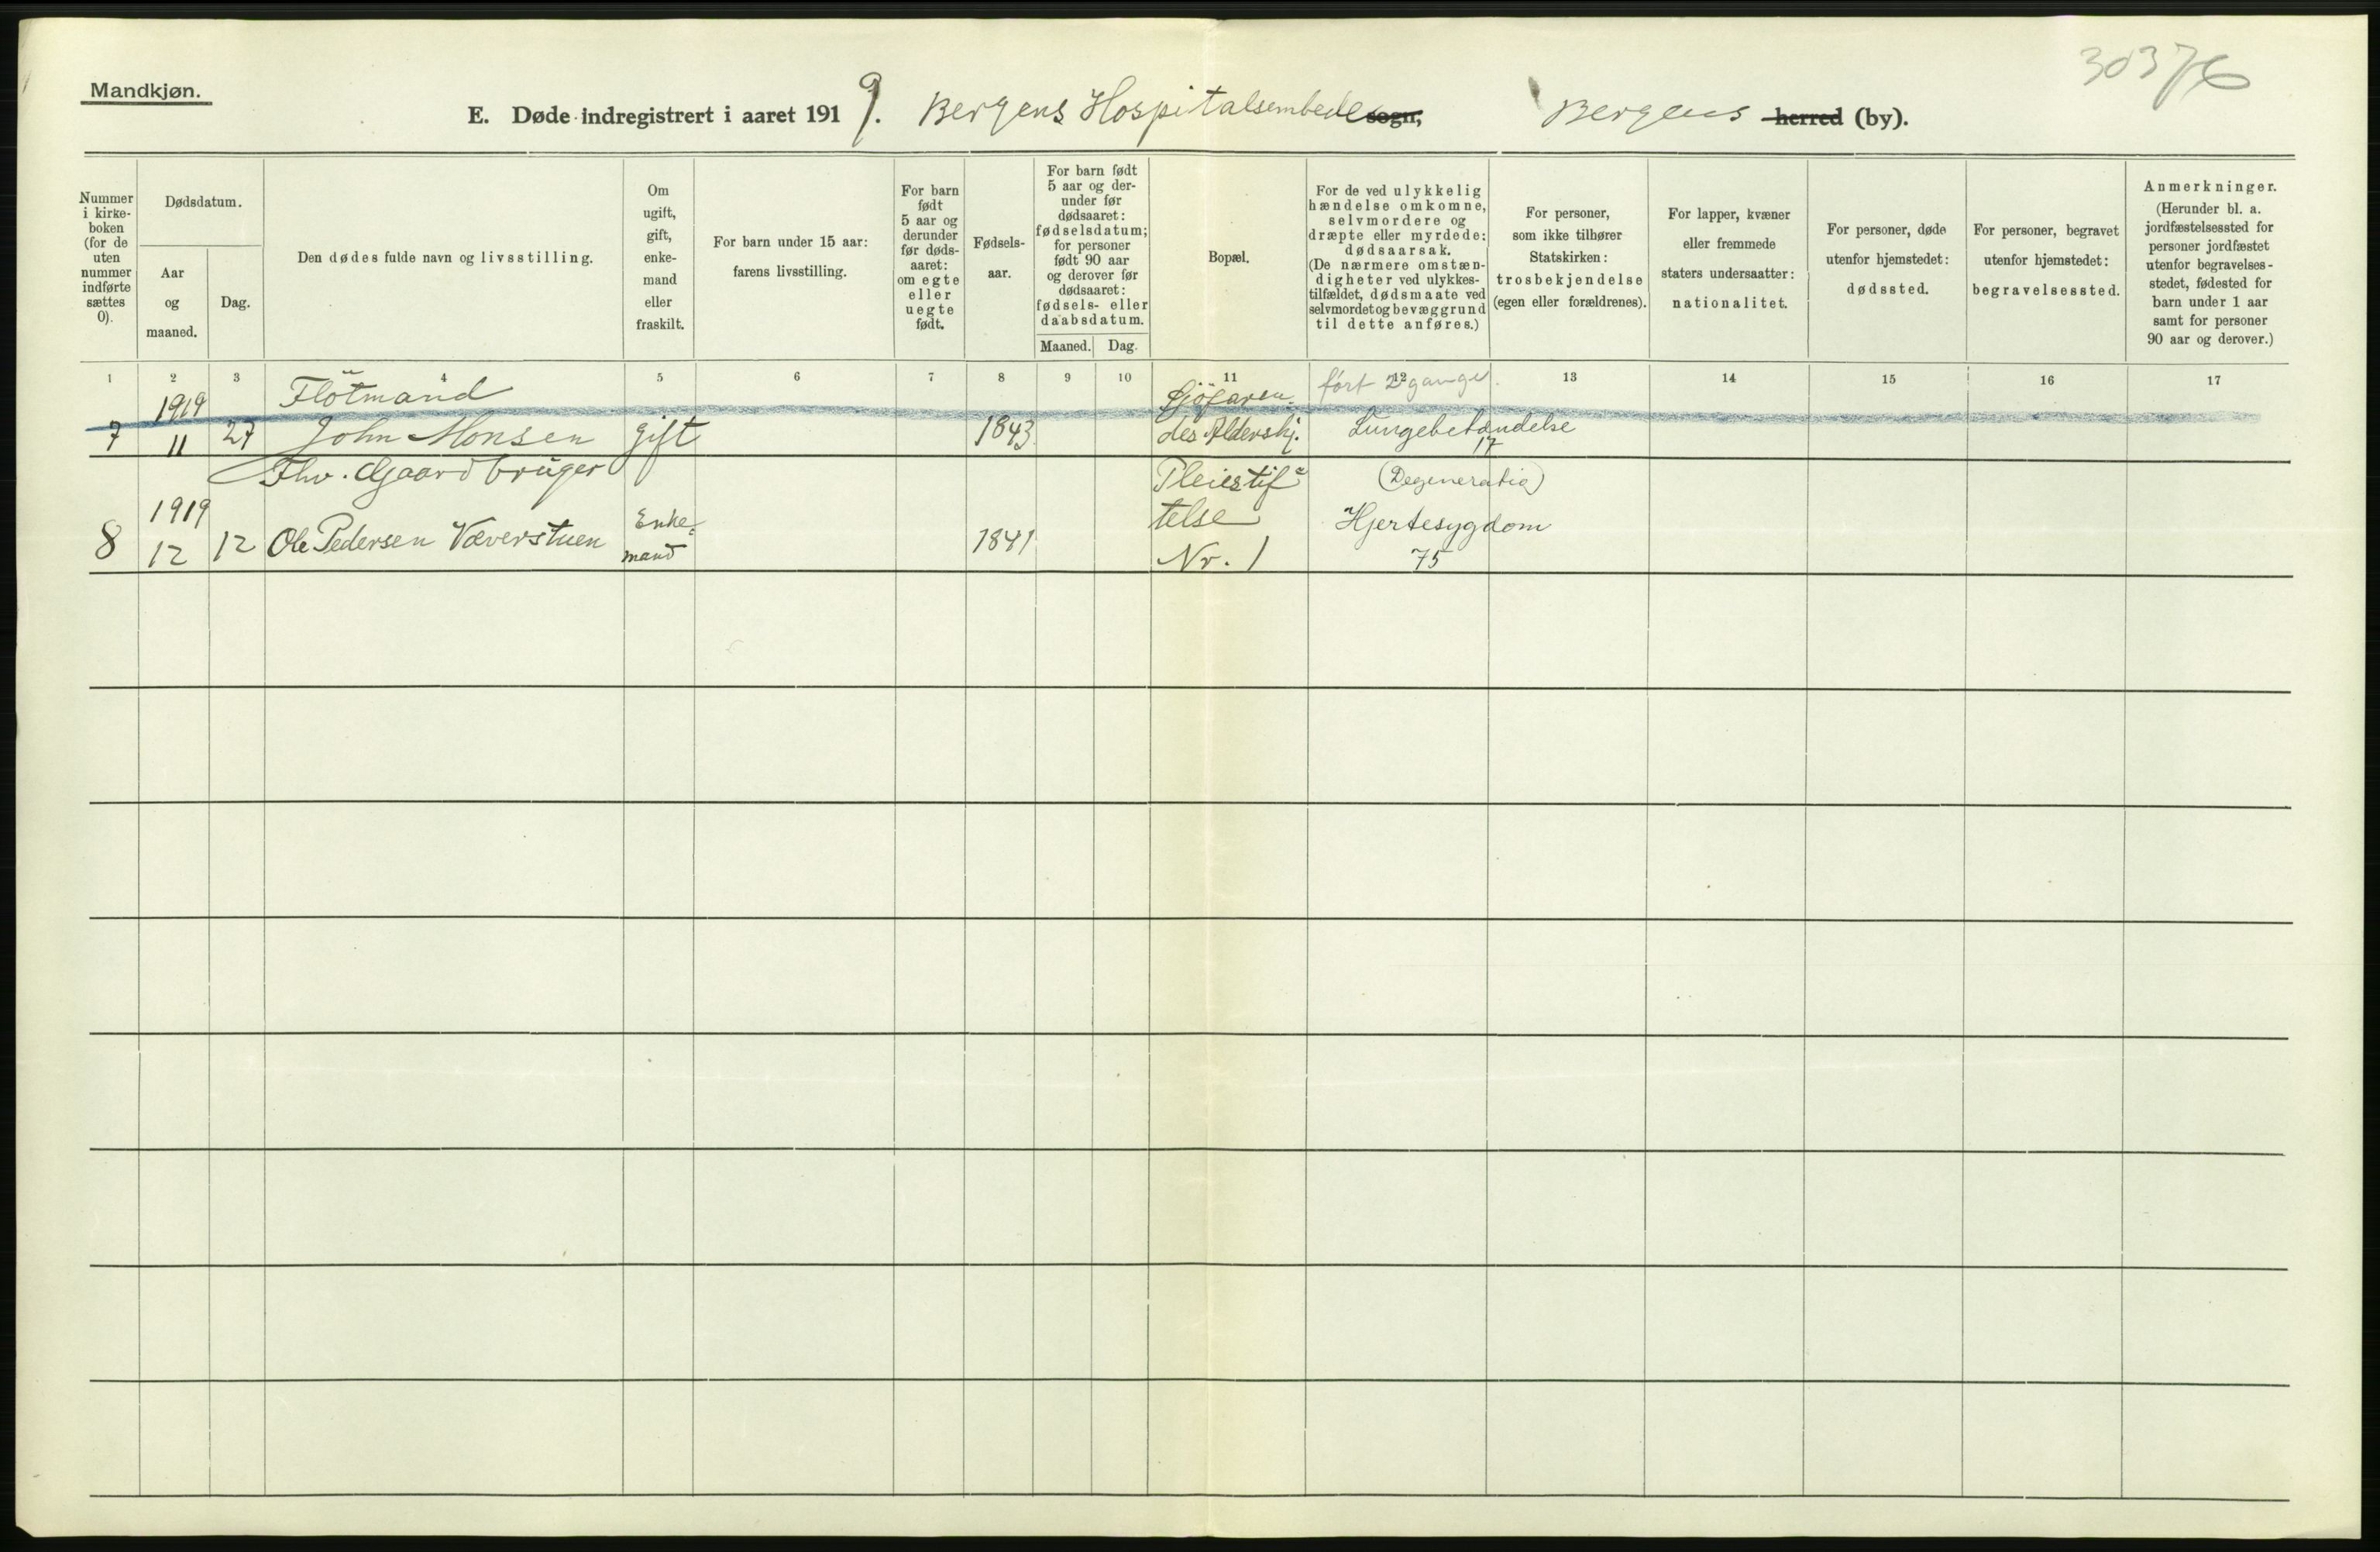 30376
Mandkjøn.
E. Døde indregistrert i aaret 1919. Bergens Hospitalsembede sogn, Bergens herred (by).
Nummer i kirke-boken (for de uten nummer indførte sættes 0).
Dødsdatum.
Aar og maaned.
Dag.
Den dødes fulde navn og livsstilling.
Om ugift, gift, enke-mand eller fraskilt.
For barn under 15 aar: farens livsstilling.
For barn født 5 aar og derunder før døds-aaret: om egte eller uegte født.
Fødsels-aar.
For barn født 5 aar og der-under før dødsaaret: fødselsdatum; for personer født 90 aar og derover før dødsaaret: fødsels- eller daabsdatum.
Maaned. Dag.
Bopæl.
For de ved ulykkelig hændelse omkomne, selvmordere og dræpte eller myrdede: dødsaarsak. (De nærmere omstæn-digheter ved ulykkes-tilfældet, dødsmaate ved selvmordet og bevæggrund til dette anføres.)
For personer, som ikke tilhører Statskirken: trosbekjendelse (egen eller forældrenes).
For lapper, kvæner eller fremmede staters undersaatter: nationalitet.
For personer, døde utenfor hjemstedet: dødssted.
For personer, begravet utenfor hjemstedet: begravelsessted.
Anmerkninger. (Herunder bl. a. jordfæstelsessted for personer jordfæstet utenfor begravelses-stedet, fødested for barn under 1 aar samt for personer 90 aar og derover.)
1 2 3 4 5 6 7 8 9 10 11 12 13 14 15 16 17
1919 Flötmand ført 2 gange.
7 11 27 John Monsen gift 1843 des Aldershj. Lungebetændelse
17
Fhv. Gaardbruger Pleiestif= (Degeneratio)
1919 Enke= telse Hjertesygdom
8 12 12 Ole Pedersen Væverstuen mand 1841 Nr. 1 75